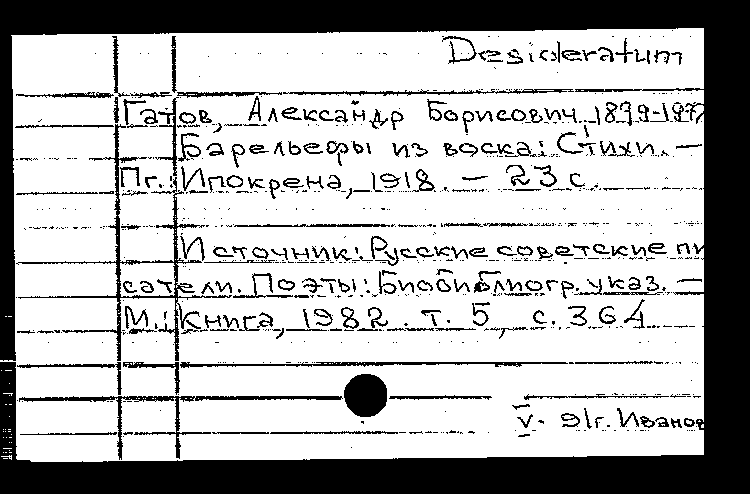 Desideratum
Гатов, Александр Борисович 1899-197
Барельефы из воска: Стихи. —
Пг.: Ипокрена, 1918. — 23 с.
Источник: Русские советские пи
сатели. Поэты: Биобиблиогр. указ. —
М.: Книга, 1982. т. 5, с. 364
V. 91г. Иванов